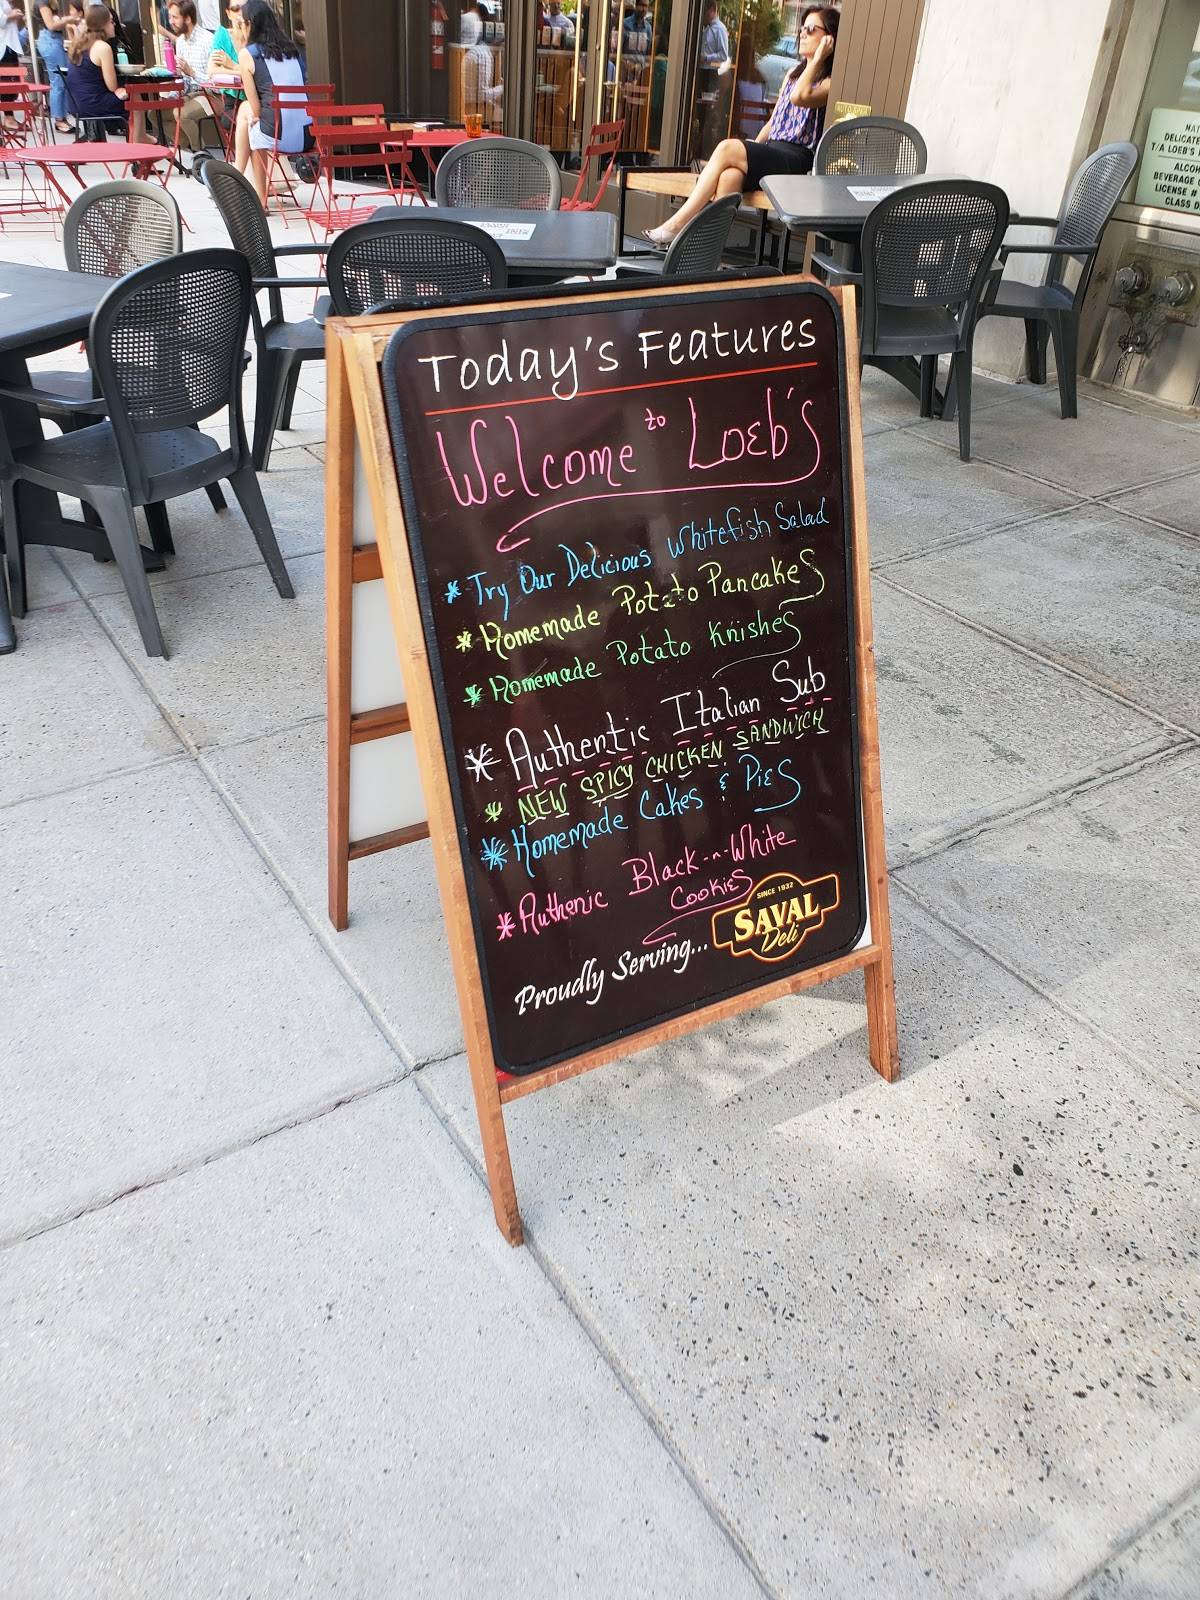 Today's Features
Welcome to Loeb's
* Try Our Delicious Whitefish Salad
* Homemade Potato Pancakes
* Homemade Potato Knishes
* Authentic Italian Sub
* NEW SPICY CHICKEN SANDWICH
* Homemade Cakes & Pies
* Authenic Black-n-White
Cookies
Proudly Serving...
SINCE 1932
SAVAL
Deli
DELICATE
T/A LOEB'S
ALCOH
BEVERAGE
LICENSE #
CLASS D